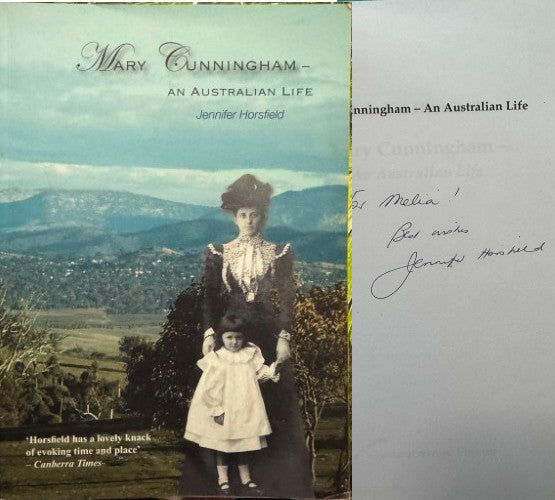 MARY CUNNINGHAM –
AN AUSTRALIAN LIFE
Jennifer Horsfield
'Horsfield has a lovely knack
of evoking time and place'
– Canberra Times
nningham – An Australian Life
ry Cunningham –
An Australian Life
for Melia!
Best wishes
Jennifer Horsfield